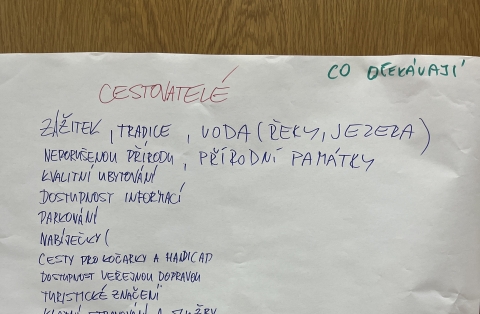 CO OČEKÁVAJÍ
CESTOVATELÉ
ZÁŽITEK, TRADICE, VODA (ŘEKY, JEZERA)
NEPORUŠENOU PŘÍRODU, PŘÍRODNÍ PAMÁTKY
KVALITNÍ UBYTOVÁNÍ
DOSTUPNOST INFORMACÍ
PARKOVÁNÍ
NABÍJEČKY (
CESTY PRO KOČÁRKY A HANDICAP
DOSTUPNOST VEŘEJNOU DOPRAVOU
TURISTICKÉ ZNAČENÍ
STRAVOVÁNÍ A SLUŽBY